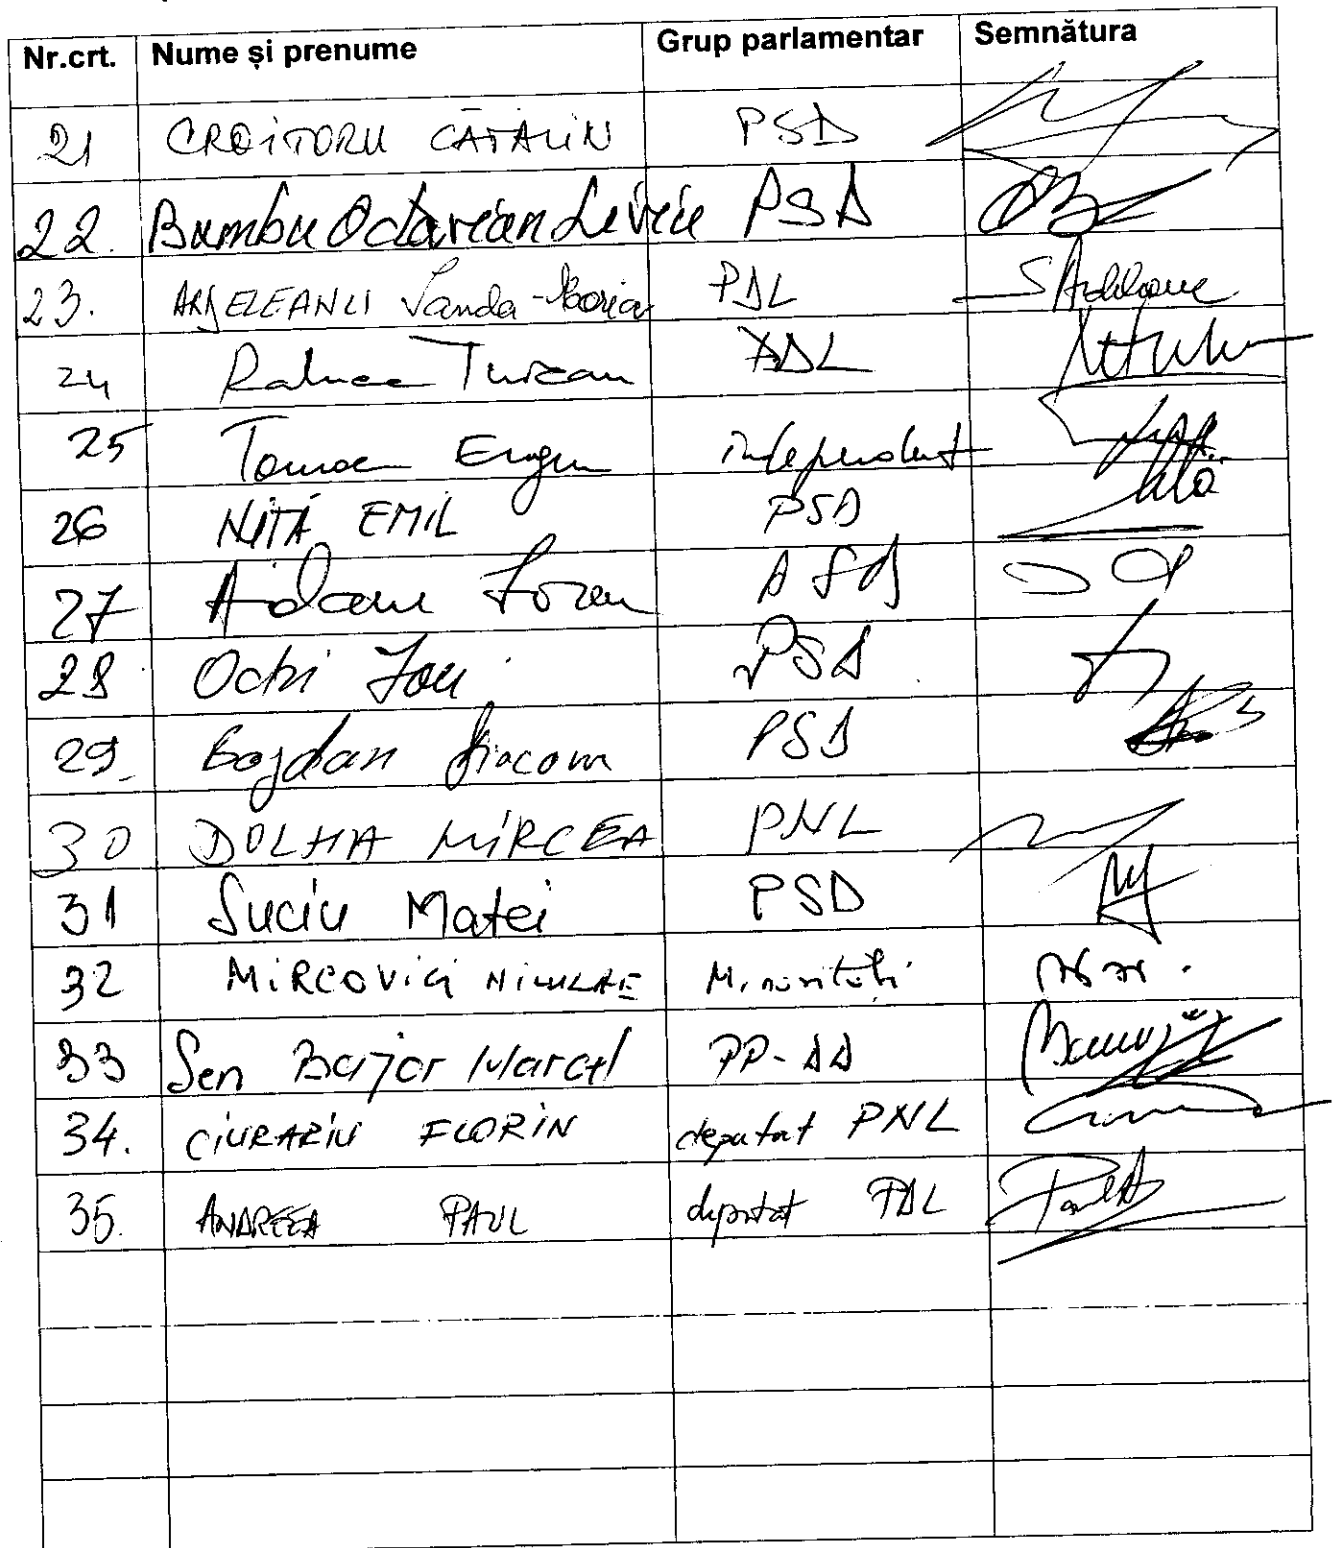 Nr.crt. Nume și prenume Grup parlamentar Semnătura
21 CROITORU CĂTĂLIN PSD
22. Bumbu Octavian Liviu PSD
23. ARDELEANU Sanda-Maria PDL SArdeleanu
24 Raluca Turcan PDL
25 Tomac Eugen independent
26 NIȚĂ EMIL PSD
27 Adam Ioan PSD
28 Ochi Ion PSD
29. Bogdan Ciucă PSD
30 DOLHA MIRCEA PNL
31 Suciu Matei PSD
32 MIRCOVICI NICULAE Minorități
33 Sen Marcel PP-DD
34. CIURARIU FLORIN deputat PNL
35. ANDREEA PAUL deputat PDL PaulA